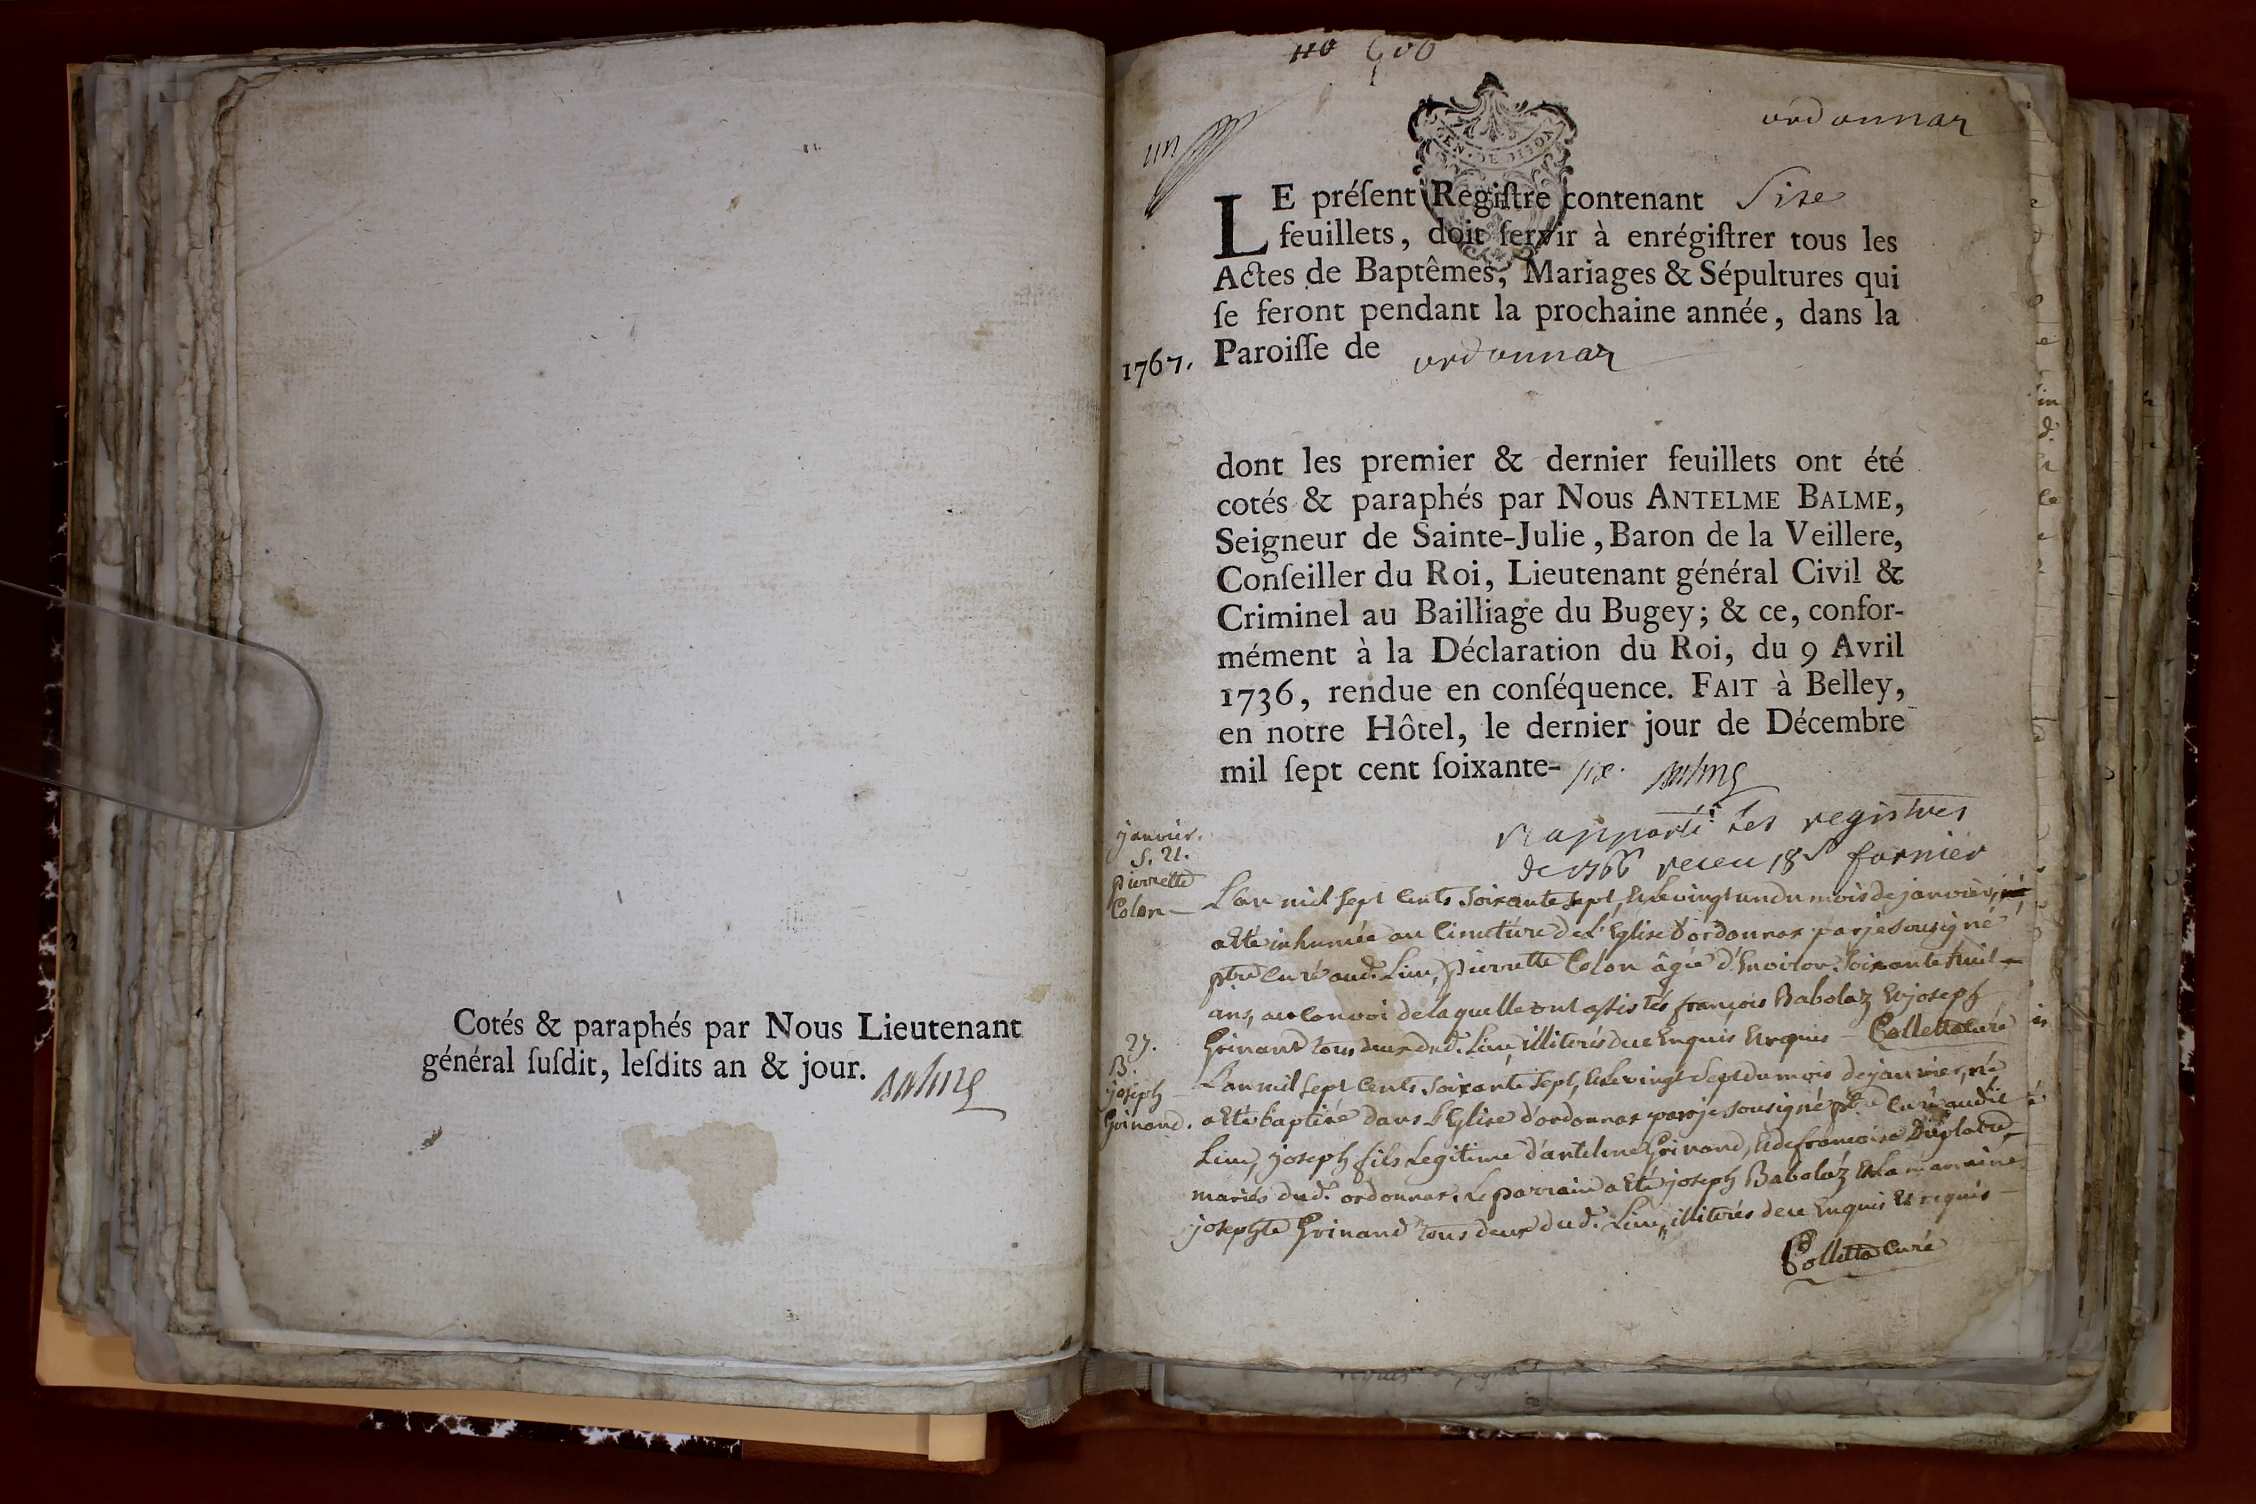 Cotés & paraphés par Nous Lieutenant
général ſuſdit, leſdits an & jour. Balme
110 600
un
ordonnaz
GEN. DE DIJON
LE préſent Regiſtre contenant Sixe
feuillets, doit ſervir à enrégiſtrer tous les
Actes de Baptêmes, Mariages & Sépultures qui
ſe feront pendant la prochaine année, dans la
1767. Paroiſſe de ordonnaz
dont les premier & dernier feuillets ont été
cotés & paraphés par Nous ANTELME BALME,
Seigneur de Sainte-Julie, Baron de la Veillere,
Conſeiller du Roi, Lieutenant général Civil &
Criminel au Bailliage du Bugey; & ce, confor-
mément à la Déclaration du Roi, du 9 Avril
1736, rendue en conſéquence. FAIT à Belley,
en notre Hôtel, le dernier jour de Décembre
mil ſept cent ſoixante- six. Balme
rapporté les registres
de 1766 receu 18s fornier
janvier.
S. 21.
pierrette
Colon
L'an mil sept Cents soixante sept, et le vingt un du mois de janvier,
a été inhumée au Cimetiére de L'Eglise d'ordonnaz par je sousigné
ptre Curé aud. Lieu, pierrette Colon âgée d'Environ soixante huit
ans, au Convoi de laquelle ont assistés françois Babolaz et joseph
Grinand tous deux dud. Lieu, illiterés de ce Enquis et requis Colletta curé
27.
B.
joseph
Grinand.
L'an mil sept Cents soixante sept, et le vingt sept du mois de janvier, né
a été baptisé dans L'Eglise d'ordonnaz par je sousigné ptre Curé audit
Lieu, joseph fils Legitime d'antelme Grinand, et de françoise Duplatre
mariés dud. ordonnaz. Le parrain a été joseph Babolaz et La marraine
josephte Grinand tous deux dud. Lieu, illiterés de ce Enquis et requis
Colletta Curé